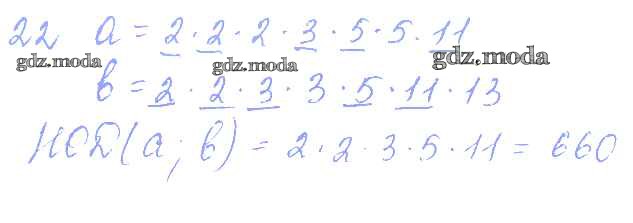 22 a = 2 · 2 · 2 · 3 · 5 · 5 · 11
gdz.moda gdz.moda gdz.moda
b = 2 · 2 · 3 · 3 · 5 · 11 · 13
НОД(a; b) = 2 · 2 · 3 · 5 · 11 = 660